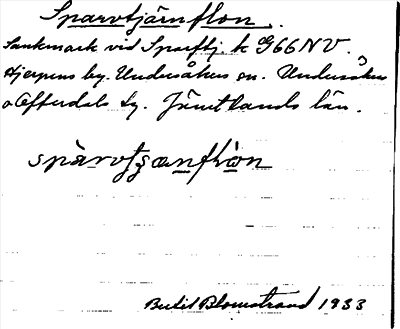 Sparvtjärnflon.
Sankmark vid Sparftj. k G66NV.
Hjerpens by. Undersåkers sn. Undersåkers
o Offerdals tg. Jämtlands län.
spàrvtʒænflὼn
Bertil Blomstrand 1933